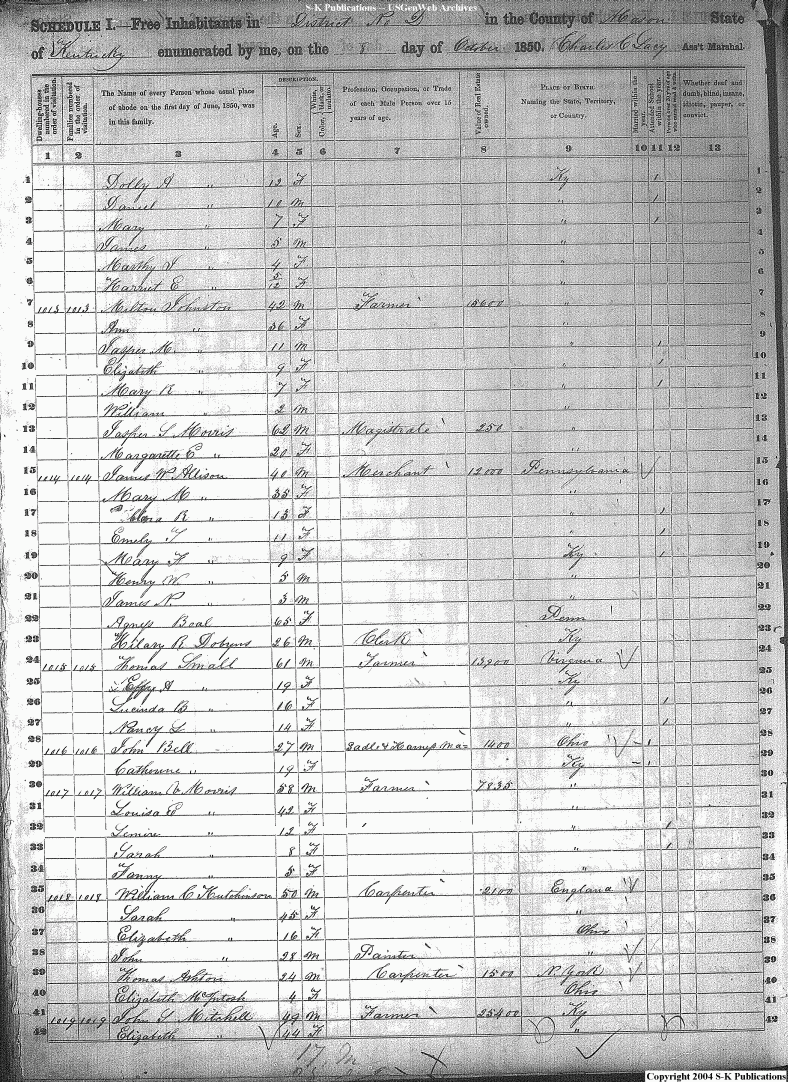 S-K Publications – USGenWeb Archives
SCHEDULE I.—Free Inhabitants in District No 2 in the County of Mason State
of Kentucky enumerated by me, on the 8 day of October 1850. Charles C Lacy Ass't Marshal.
Dwelling-houses numbered in the order of visitation.
Families numbered in the order of visitation.
The Name of every Person whose usual place of abode on the first day of June, 1850, was in this family.
DESCRIPTION.
Age.
Sex.
Color, White, black, or mulatto.
Profession, Occupation, or Trade of each Male Person over 15 years of age.
Value of Real Estate owned.
PLACE OF BIRTH. Naming the State, Territory, or Country.
Married within the year.
Attended School within the year.
Persons over 20 y'rs of age who cannot read & write.
Whether deaf and dumb, blind, insane, idiotic, pauper, or convict.
1 2 3 4 5 6 7 8 9 10 11 12 13
1 Dolly A " 12 F Ky 1 1
2 Daniel " 10 M " 1 2
3 Mary " 7 F " 1 3
4 James " 5 M " 4
5 Marthy J " 4 F " 5
6 Harriet E " 5/12 F " 6
7 1013 1013 Milton Johnston 42 M Farmer 15600 " 7
8 Ann " 36 F " 8
9 Jasper M. " 11 M " 1 9
10 Elizabeth " 9 F " 1 10
11 Mary R " 7 F " 1 11
12 William " 2 M " 12
13 Jasper S Morris 62 M Magistrate 250 " 13
14 Margarette E " 20 F " 14
15 1014 1014 James W Allison 40 M Merchant 12000 Pennsylvania 15
16 Mary M " 35 F " 16
17 R " 13 F " 1 17
18 Emely T " 11 F " 1 18
19 Mary F " 9 F Ky 1 19
20 Henry W " 5 M " 20
21 James N. " 3 M " 21
22 Agness Beal 65 F Penn 22
23 Hilary R Dobyns 26 M Clerk Ky 23
24 1015 1015 Thomas Small 61 M Farmer 13900 Virginia 24
25 Effy A " 19 F Ky 25
26 Lucinda B " 16 F " 1 26
27 Nancy L " 14 F " 1 27
28 1016 1016 John Bell 27 M Sadle & Harness Ma= 1400 Ohio – 1 28
29 Catherine " 19 F Ky – 1 29
30 1017 1017 William V Morris 58 M Farmer 7835 " 30
31 Louisa E " 42 F " 31
32 " 12 F " 1 32
33 Sarah " 8 F " 1 33
34 Fanny " 5 F " 34
35 1018 1018 William C Hutchinson 50 M Carpenter 2100 England 35
36 Sarah " 45 F " 36
37 Elizabeth " 16 F Ohio 37
38 John " 28 M Painter " 38
39 Thomas Ashton 24 M Carpenter 1500 N. York 39
40 Elizabeth McIntosh 4 F Ohio 40
41 1019 1019 John S Mitchell 49 M Farmer 25400 Ky 41
42 Elizabeth " 44 F " 42
17 M
Copyright 2004 S-K Publications